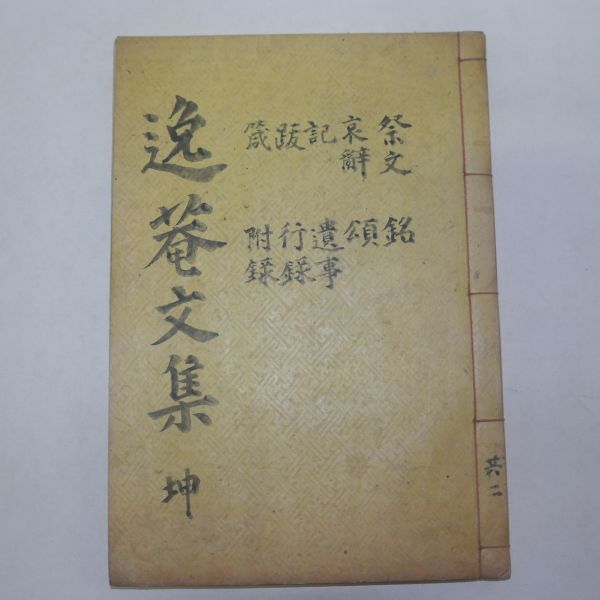 共二
祭文 銘
哀辭 頌
記 遺事
跋 行録
箴 附録
逸菴文集 坤